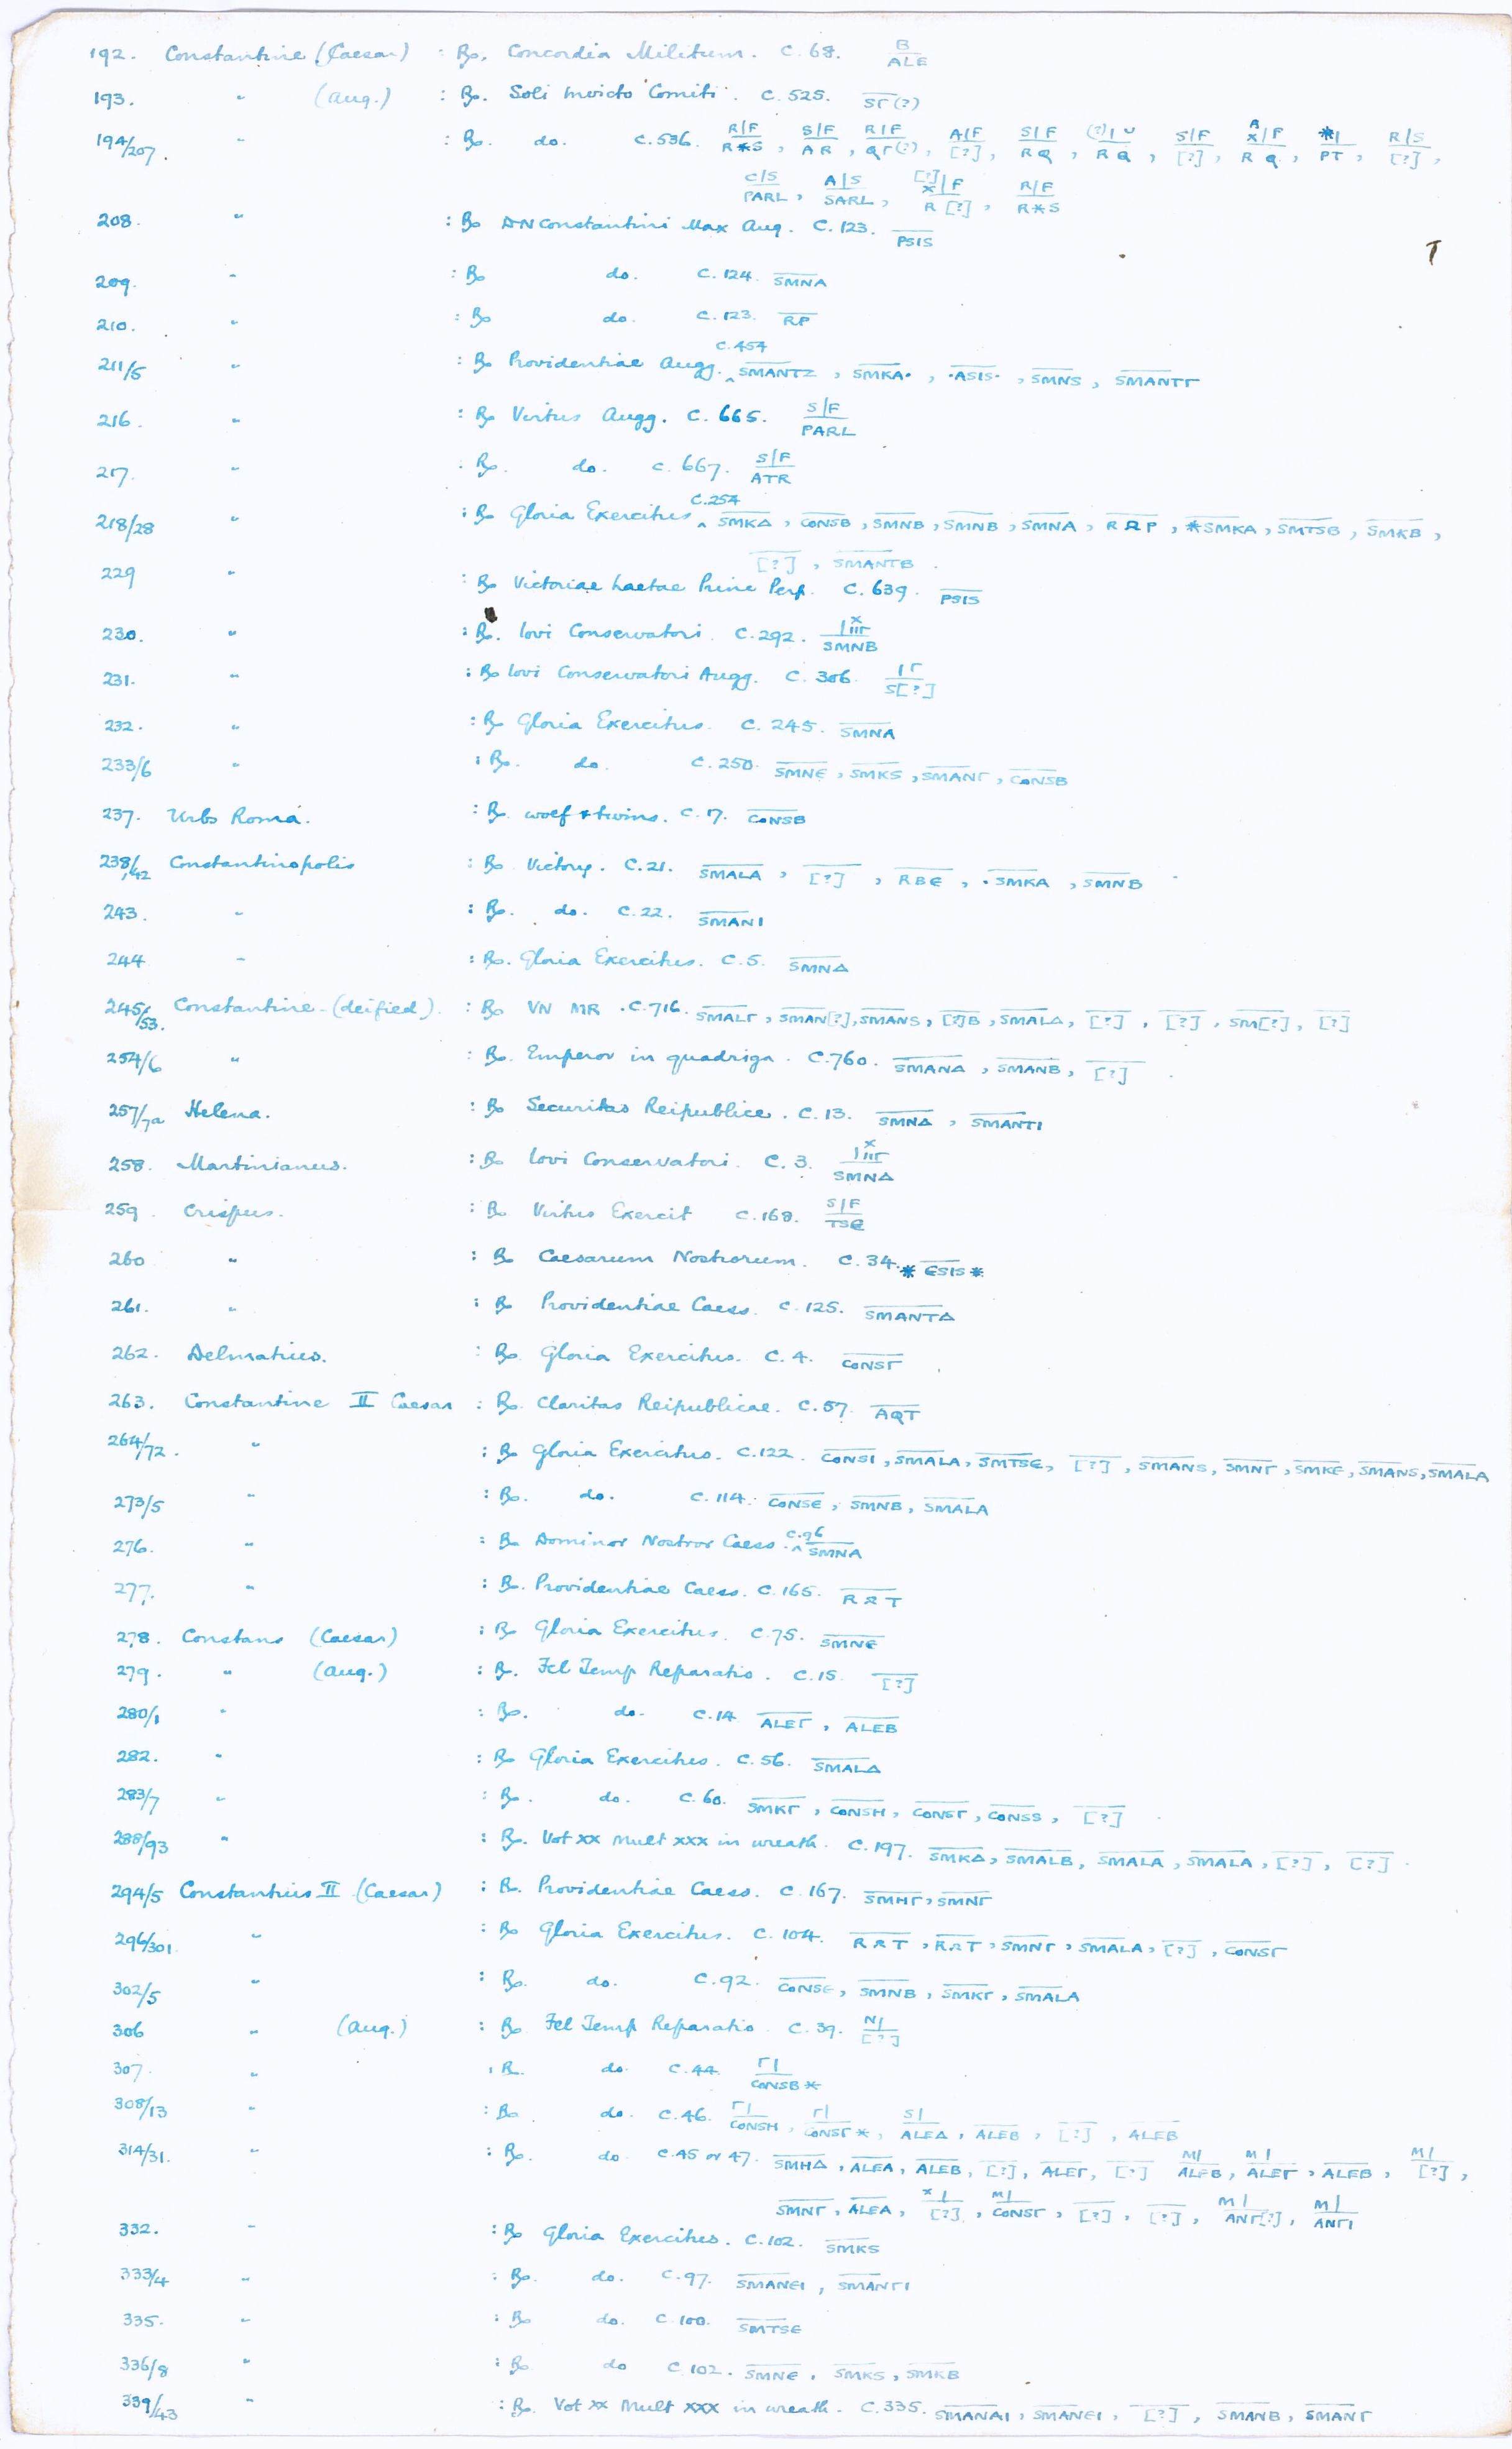 192. Constantine (Caesar) : Rx. Concordia Militum. C. 68. B/ALE
193. " (Aug.) : Rx. Soli Invicto Comiti. C. 525. SΓ(?)
194/207. " : Rx. do. C. 536. R|F/R*S, S|F/AR, R|F/QΓ(?), A|F/[?], S|F/RQ, (?)|U/RQ, S|F/[?], R X|F/RQ, *|/PT, R|S/[?],
C|S/PARL, A|S/SARL, [?]X|F/R[?], R|F/R*S
208. " : Rx DN Constantini Max Aug. C. 123. PSIS
209. " : Rx do. C. 124. SMNA
210. " : Rx do. C. 123. RP
211/5 " : Rx Providentiae Augg. C.454 SMANTZ, SMKA•, •ASIS•, SMNS, SMANTΓ
216. " : Rx Virtus Augg. C. 665. S|F/PARL
217. " : Rx. do. C. 667. S|F/ATR
218/28 " : Rx Gloria Exercitus C.254 SMKΔ, CONSB, SMNB, SMNB, SMNA, RΩP, *SMKA, SMTSB, SMKB,
[?], SMANTB.
229 " : Rx Victoriae Laetae Princ Perp. C. 639. PSIS
230. " : Rx. Iovi Conservatori. C. 292. |X IIIΓ/SMNB
231. " : Rx Iovi Conservatori Augg. C. 306. |Γ/S[?]
232. " : Rx Gloria Exercitus. C. 245. SMNA
233/6 " : Rx. do. C. 250. SMNE, SMKS, SMANΓ, CONSB
237. Urbs Roma. : Rx. wolf & twins. C. 17. CONSB
238/42 Constantinopolis : Rx. Victory. C. 21. SMALA, [?], RBE, •SMKA, SMNB
243. " : Rx. do. C. 22. SMANI
244 " : Rx. Gloria Exercitus. C. 5. SMNΔ
245/53. Constantine (deified). : Rx VN MR. C. 716. SMALΓ, SMAN[?], SMANS, [?]B, SMALΔ, [?], [?], SM[?], [?]
254/6 " : Rx. Emperor in quadriga. C. 760. SMANΔ, SMANB, [?]
257/7a Helena. : Rx Securitas Reipublice. C. 13. SMNΔ, SMANTI
258. Martinianus. : Rx Iovi Conservatori. C. 3. |X IIIΓ/SMNΔ
259. Crispus. : Rx Virtus Exercit C. 168. S|F/TSE
260 " : Rx Caesarum Nostrorum. C. 34. *ESIS*
261. " : Rx Providentiae Caess. C. 125. SMANTΔ
262. Delmatius. : Rx. Gloria Exercitus. C. 4. CONSΓ
263. Constantine II Caesar : Rx. Claritas Reipublicae. C. 57. AQT
264/72. " : Rx Gloria Exercitus. C. 122. CONSI, SMALA, SMTSE, [?], SMANS, SMNΓ, SMKE, SMANS, SMALA
273/5 " : Rx. do. C. 114. CONSE, SMNB, SMALA
276. " : Rx Dominor Nostror Caess. C.96 SMNA
277. " : Rx. Providentiae Caess. C. 165. RΩT
278. Constans (Caesar) : Rx Gloria Exercitus. C. 75. SMNE
279. " (Aug.) : Rx. Fel Temp Reparatio. C. 15. [?]
280/1 " : Rx. do. C. 14 ALEΓ, ALEB
282. " : Rx Gloria Exercitus. C. 56. SMALΔ
283/7 " : Rx. do. C. 60. SMKΓ, CONSH, CONSΓ, CONSS, [?]
288/93 " : Rx. Vot XX Mult XXX in wreath. C. 197. SMKΔ, SMALB, SMALA, SMALA, [?], [?]
294/5 Constantius II (Caesar) : Rx. Providentiae Caess. C. 167. SMHΓ, SMNΓ
296/301 " : Rx Gloria Exercitus. C. 104. RΩT, RΩT, SMNΓ, SMALA, [?], CONSΓ
302/5 " : Rx. do. C. 92. CONSE, SMNB, SMKΓ, SMALA
306 " (Aug.) : Rx Fel Temp Reparatio. C. 39. N|/[?]
307. " : Rx. do. C. 44. Γ|/CONSB*
308/13 " : Rx. do. C. 46. Γ|/CONSH, Γ|/CONSΓ*, S|/ALEΔ, ALEB, [?], ALEB
314/31. " : Rx. do C. 45 or 47. SMHΔ, ALEA, ALEB, [?], ALEΓ, [?] M|/ALEB, M|/ALEΓ, ALEB, M|/[?],
SMNΓ, ALEA, X|/[?], M|/CONSΓ, [?], [?], M|/ANΓ[?], M|/ANΓI
332. " : Rx Gloria Exercitus. C. 102. SMKS
333/4 " : Rx. do. C. 97. SMANEI, SMANΓI
335. " : Rx do. C. 100. SMTSE
336/8 " : Rx do C. 102. SMNE, SMKS, SMKB
339/43 " : Rx. Vot XX Mult XXX in wreath. C. 335. SMANAI, SMANEI, [?], SMANB, SMANΓ